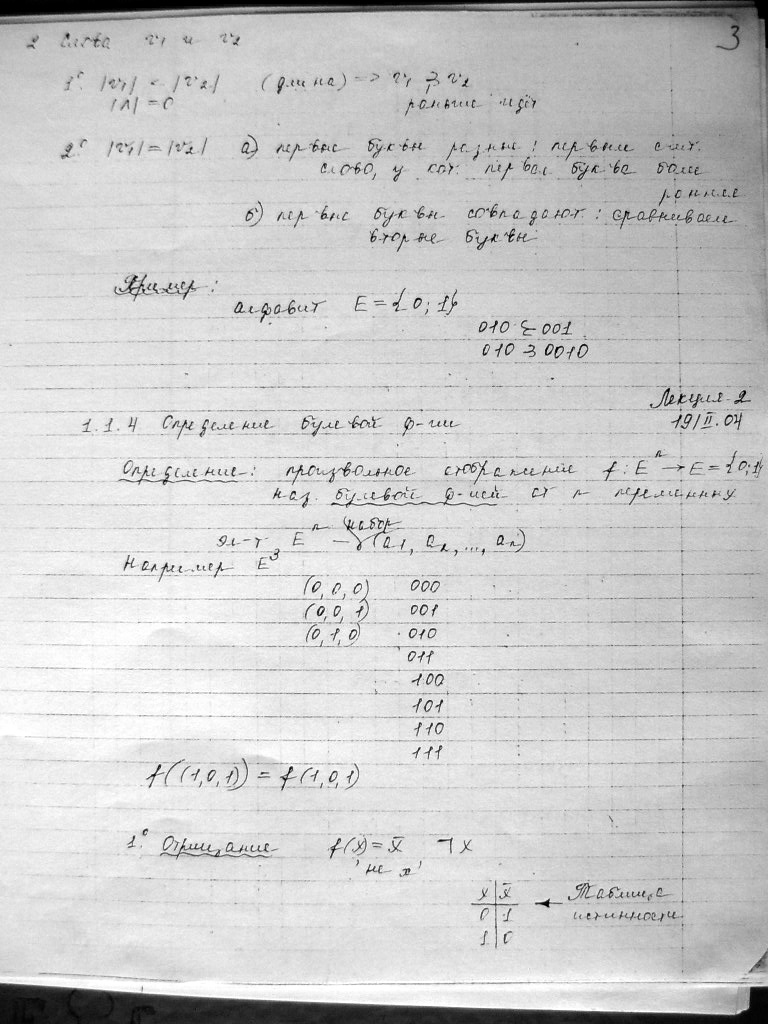 3
2 слова v₁ и v₂
1° |v₁| < |v₂| (длина) => v₁ ⊰ v₂
|Λ| = 0 раньше идёт
2° |v₁| = |v₂| а) первые буквы разные: первым счит.
слово, у кот. первая буква более
ранняя
б) первые буквы совпадают: сравниваем
вторые буквы
Пример:
алфавит E = {0; 1}
010 001
010 0010
Лекция 2
1.1.4 Определение булевой ф-ции 19/II.04
Определение: произвольное отображение f: Eⁿ → E = {0; 1}
наз. булевой ф-ией от n переменных
набор
эл-т Eⁿ → (a₁, a₂, ..., aₙ)
Например E³
(0, 0, 0) 000
(0, 0, 1) 001
(0, 1, 0) 010
011
100
101
110
111
f((1,0,1)) = f(1,0,1)
1° Отрицание f(x) = x̄ ¬x
'не x'
x | x̄ ← Таблица
0 | 1 истинности
1 | 0